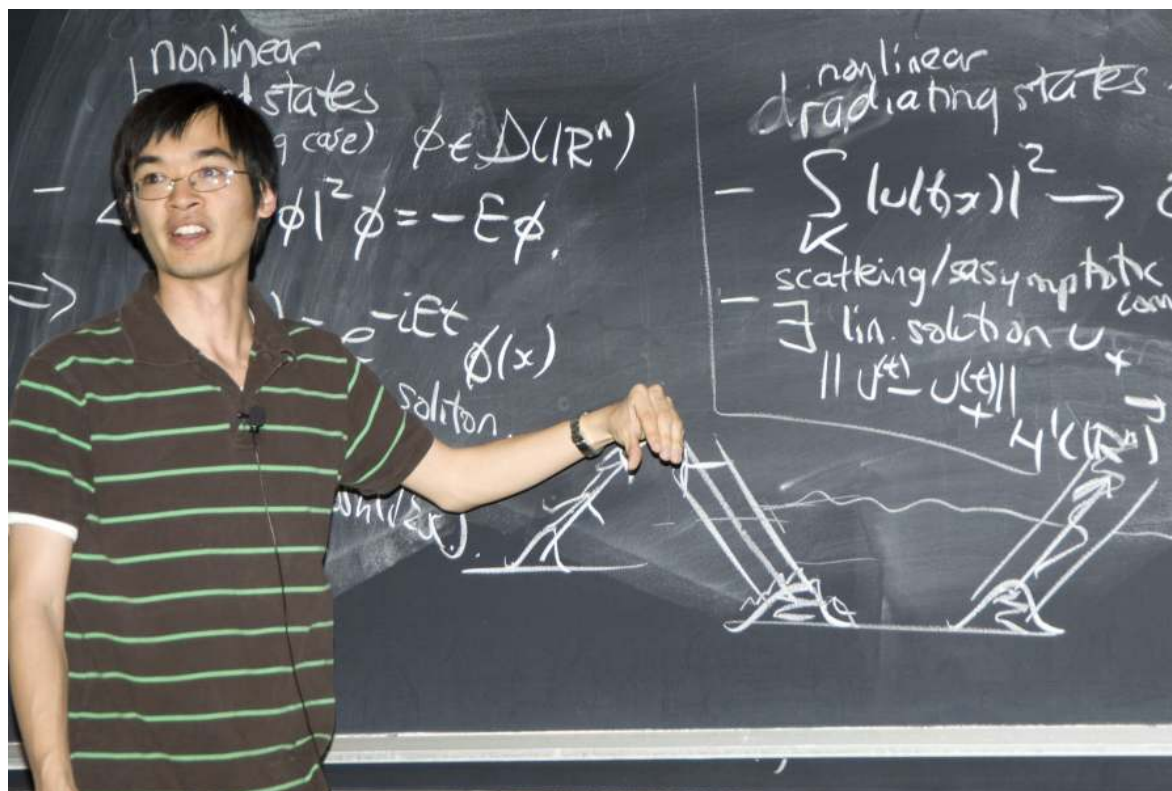 nonlinear
states
case) ϕ ∈ Δ(ℝⁿ)
- ϕ|² ϕ = -Eϕ.
⇒ e^{-iEt} ϕ(x)
soliton.
nonlinear
radiating states
- ∫_K |u(t,x)|² →
- scattering/asymptotic
∃ lin. solution u₊
||u(t) - u₊(t)||
H¹(ℝⁿ) →